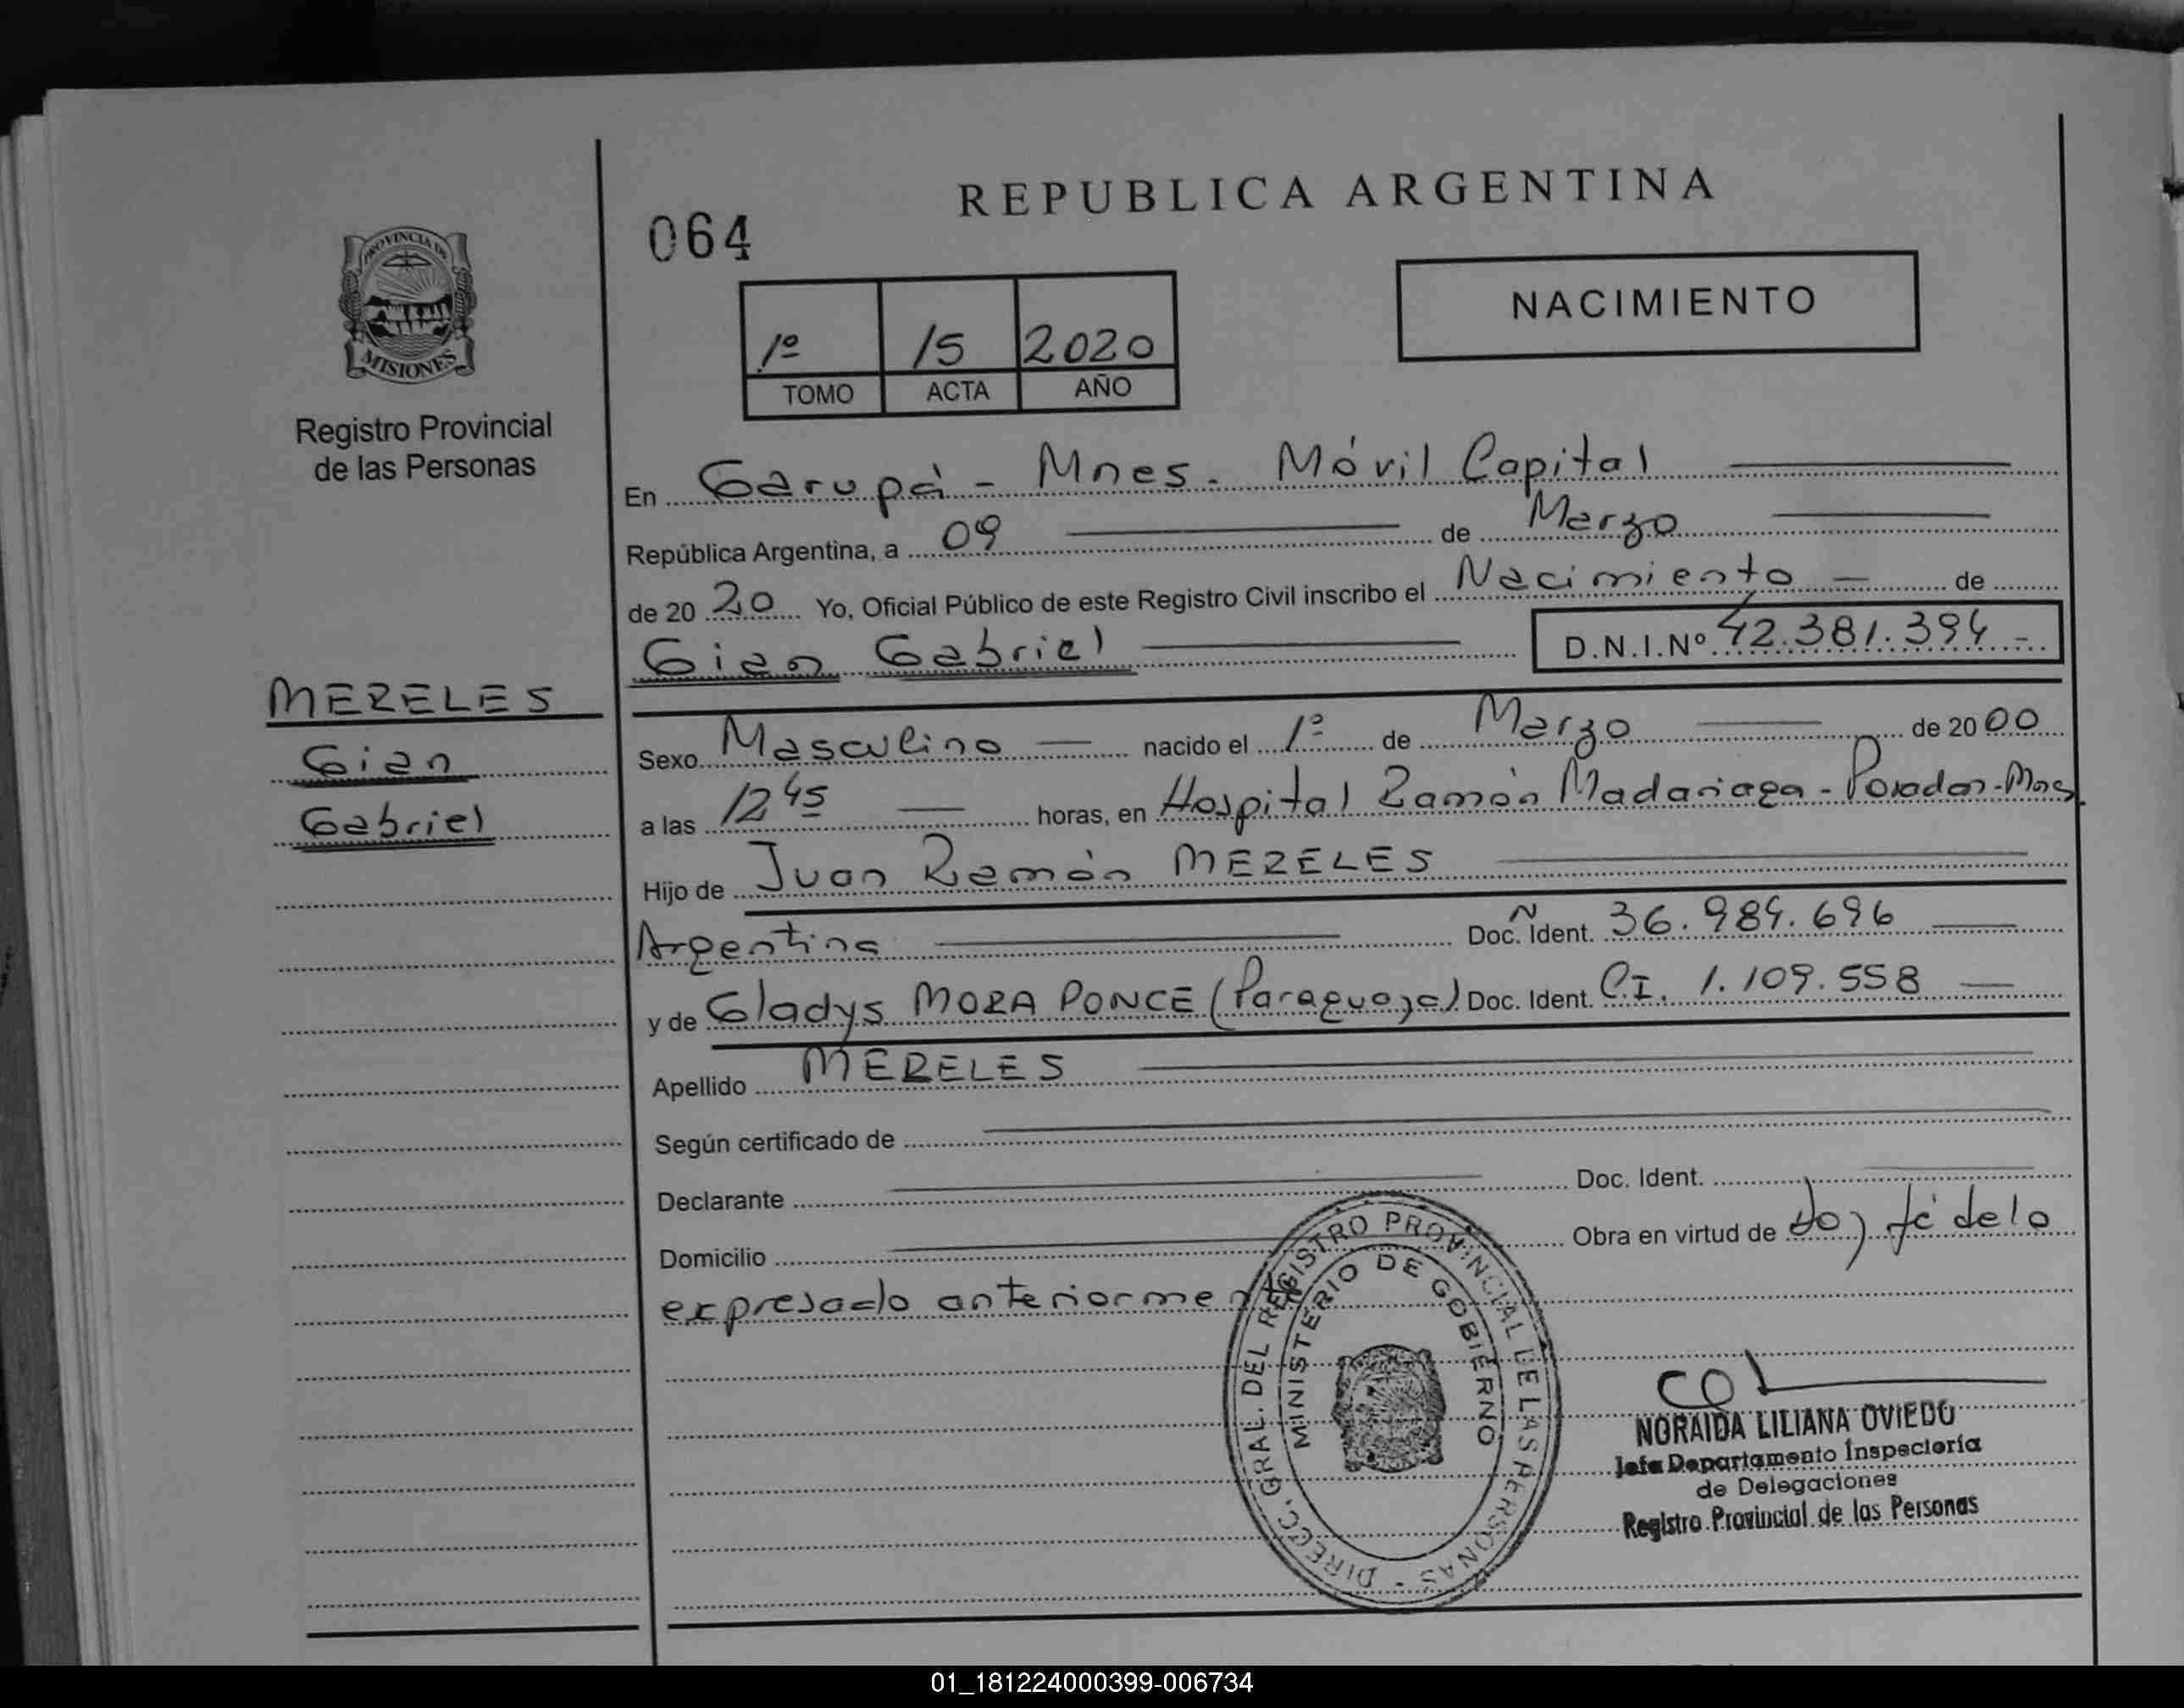 REPUBLICA ARGENTINA
064
NACIMIENTO
PROVINCIA DE
MISIONES
Registro Provincial
de las Personas
1º 15 2020
TOMO ACTA AÑO
En Garupá - Mnes. Móvil Capital
República Argentina, a 09 de Marzo
de 20 20 Yo, Oficial Público de este Registro Civil inscribo el Nacimiento de
Gian Gabriel D.N.I.Nº 42.381.394 -
MERELES
Gian
Gabriel
Sexo Masculino nacido el 1º de Marzo de 20 00
a las 12 45 horas, en Hospital Ramón Madariaga - Posadas - Mnes.
Hijo de Juan Ramón MERELES
Argentina Doc. Ident. Nº 36.984.696
y de Gladys MORA PONCE (Paraguaya) Doc. Ident. CI. 1.109.558
Apellido MERELES
Según certificado de
Declarante Doc. Ident.
Domicilio Obra en virtud de doy fé de lo
expresado anteriormente
DIRECC. GRAL. DEL REGISTRO PROVINCIAL DE LAS PERSONAS -
MINISTERIO DE GOBIERNO
NORAIDA LILIANA OVIEDO
Jefa Departamento Inspectoría
de Delegaciones
Registro Provincial de las Personas
01_181224000399-006734